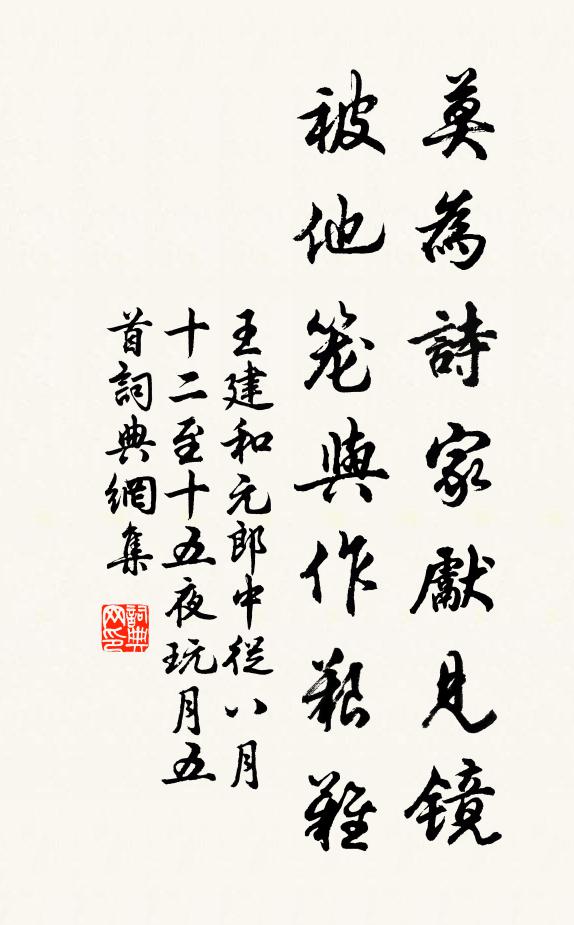 莫為詩家獻見鏡
被他笼與作艱難
王建和元郎中從八月
十二至十五夜玩月五
首詞典網集
詞典网印